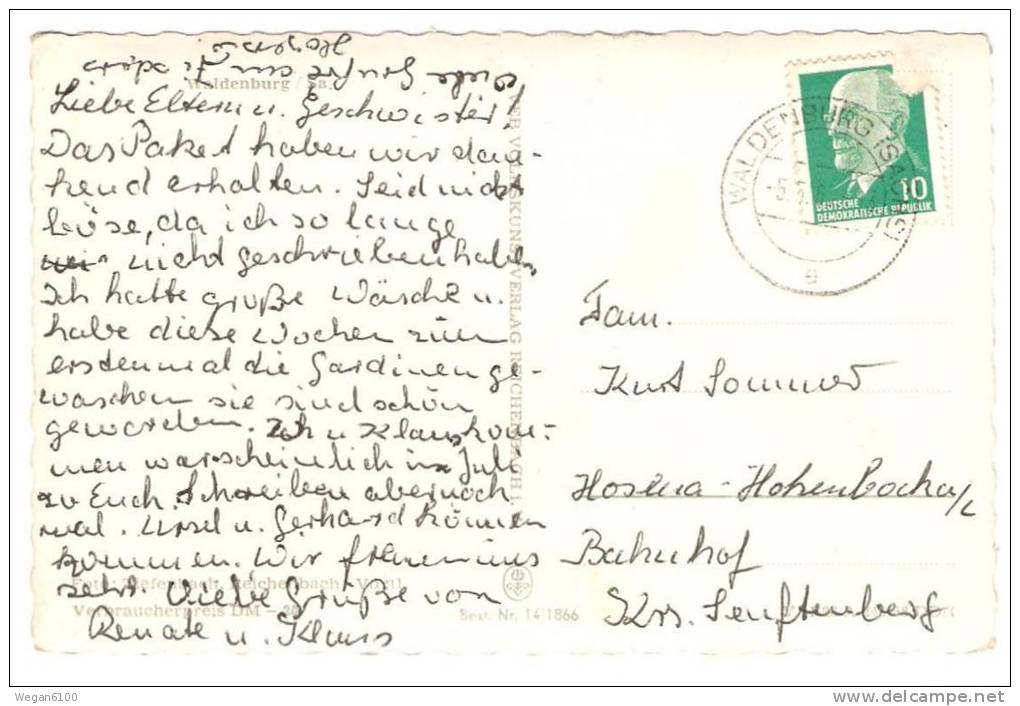 Waldenburg / Sa.
Liebe Eltern u. Geschwister!
Das Paket haben wir dan-
kend erhalten. Seid nicht
böse, da ich so lange
nicht geschrieben habe.
Ich hatte große Wäsche u.
habe diese Wochen zum
erstenmal die Gardinen ge-
waschen sie sind schön
geworden. Ich u Klaus kom-
men warscheinlich im Juli
zu Euch. Schreiben aber noch
mal. Ursel u. Gerhard können
kommen. Wir freuen uns
sehr. Viele Grüße von
Renate u. Klaus
Foto: Tiefenbach, Reichenbach i. Vogtl.
Verbraucherpreis DM -.20
Best. Nr. 14/1866
VEB VOLKSKUNSTVERLAG REICHENBACH i.
WALDENBURG (SACHS)
10
DEUTSCHE
DEMOKRATISCHE REPUBLIK
Fam.
Kurt Sommer
Hosena-Hohenbocka
Bahnhof
Krs. Senftenberg
Wegan6100
www.delcampe.net